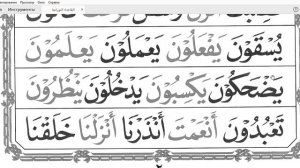 يُسْقَوْنَ يَفْعَلُوْنَ يَعْمَلُوْنَ يَعْلَمُوْنَ
يَضْحَكُوْنَ يَكْسِبُوْنَ يَدْخُلُوْنَ يَنْظُرُوْنَ
تَعْبُدُوْنَ اَنْعَمْتَ اَنْذَرْنَا اَنْزَلْنَا خَلَقْنَا